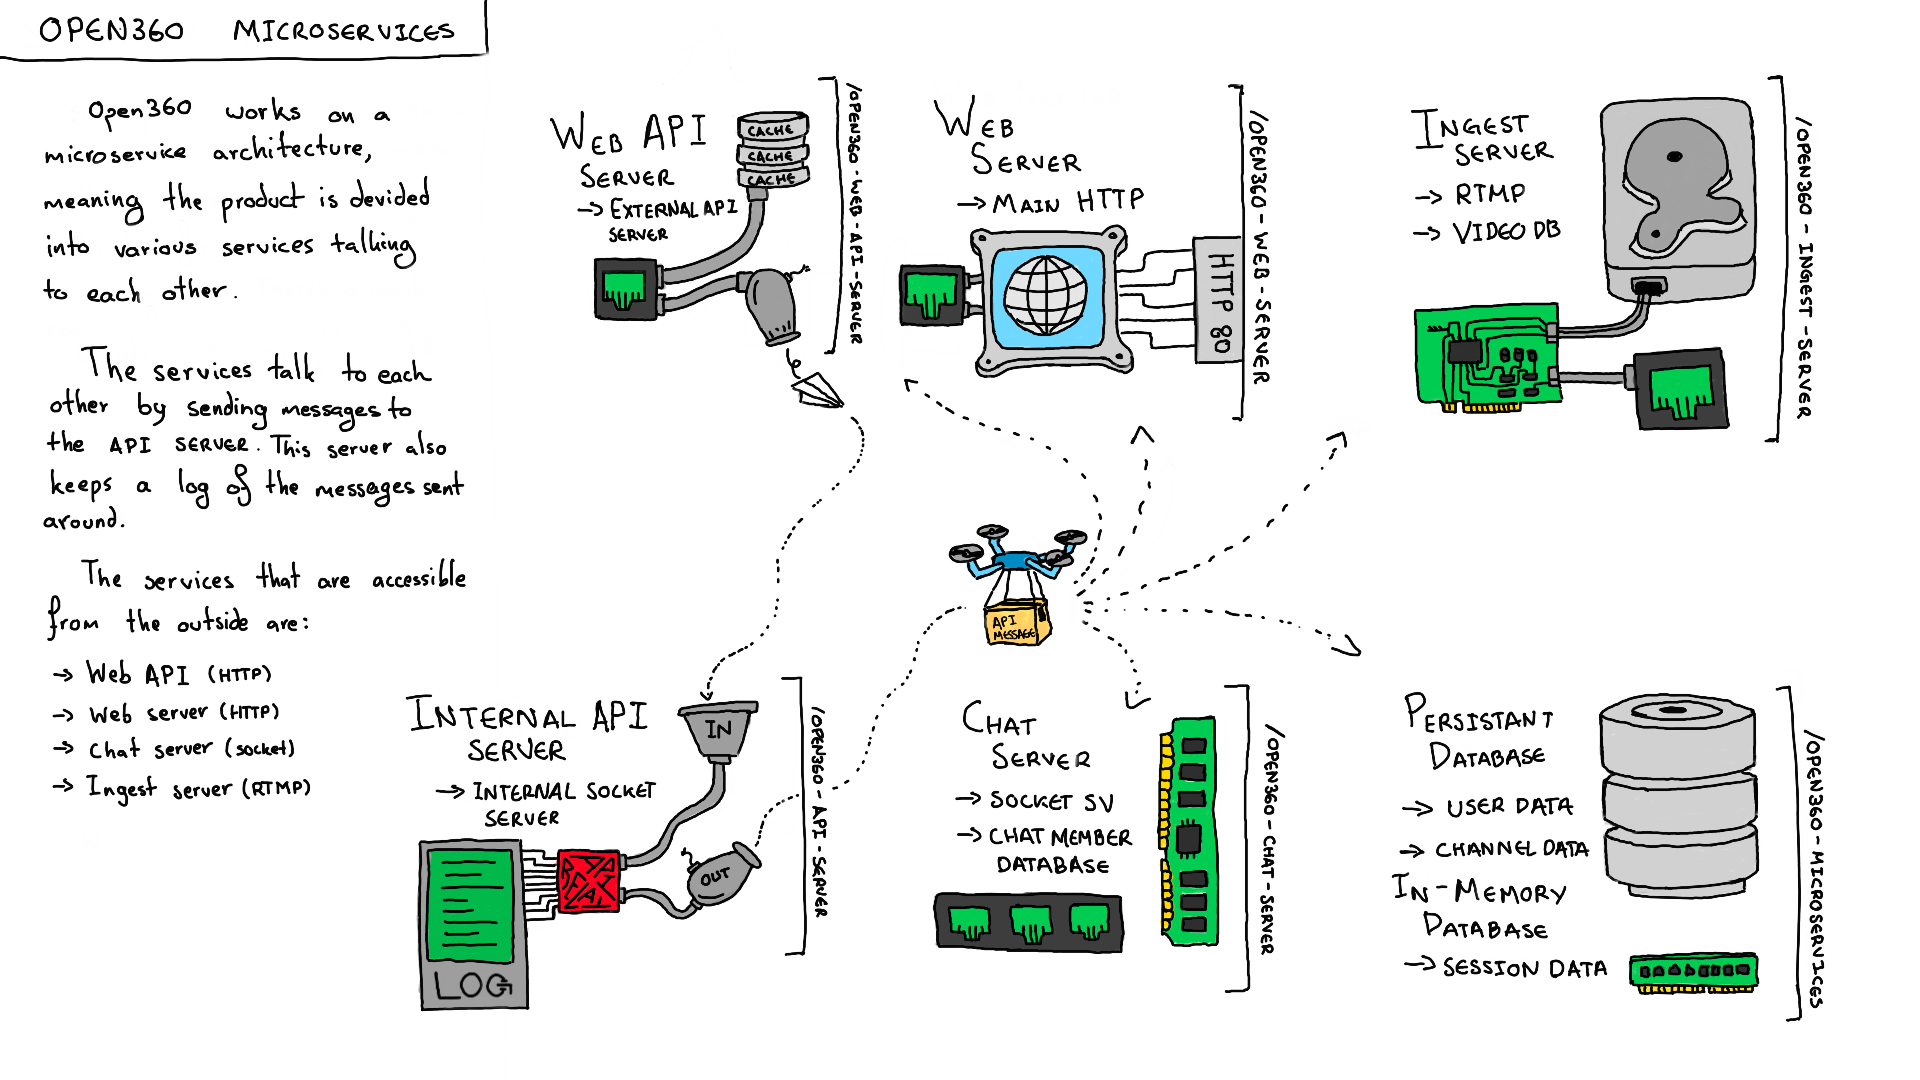 OPEN360 MICROSERVICES
Open360 works on a
microservice architecture,
meaning the product is devided
into various services talking
to each other.
The services talk to each
other by sending messages to
the API SERVER. This server also
keeps a log of the messages sent
around.
The services that are accessible
from the outside are:
→ Web API (HTTP)
→ Web server (HTTP)
→ Chat server (socket)
→ Ingest server (RTMP)
WEB API
SERVER
→ EXTERNAL API
SERVER
CACHE
CACHE
CACHE
/OPEN360-WEB-API-SERVER
WEB
SERVER
→ MAIN HTTP
HTTP 80
/OPEN360-WEB-SERVER
INGEST
SERVER
→ RTMP
→ VIDEO DB
/OPEN360-INGEST-SERVER
API
MESSAGE
INTERNAL API
SERVER
→ INTERNAL SOCKET
SERVER
IN
OUT
LOG
/OPEN360-API-SERVER
CHAT
SERVER
→ SOCKET SV
→ CHAT MEMBER
DATABASE
/OPEN360-CHAT-SERVER
PERSISTANT
DATABASE
→ USER DATA
→ CHANNEL DATA
IN-MEMORY
DATABASE
→ SESSION DATA
/OPEN360-MICROSERVICES